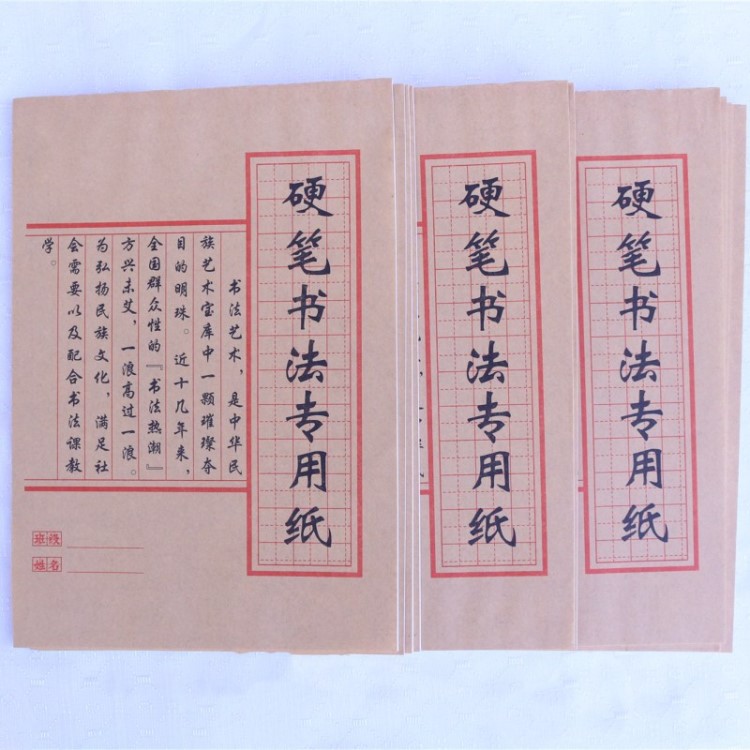 硬笔书法专用纸
书法艺术，是中华民
族艺术宝库中一颗璀璨夺
目的明珠。近十几年来，
全国群众性的『书法热潮』
方兴未艾，一浪高过一浪。
为弘扬民族文化，满足社
会需要以及配合书法课教
学。
班级
姓名
硬笔书法专用纸
硬笔书法专用纸